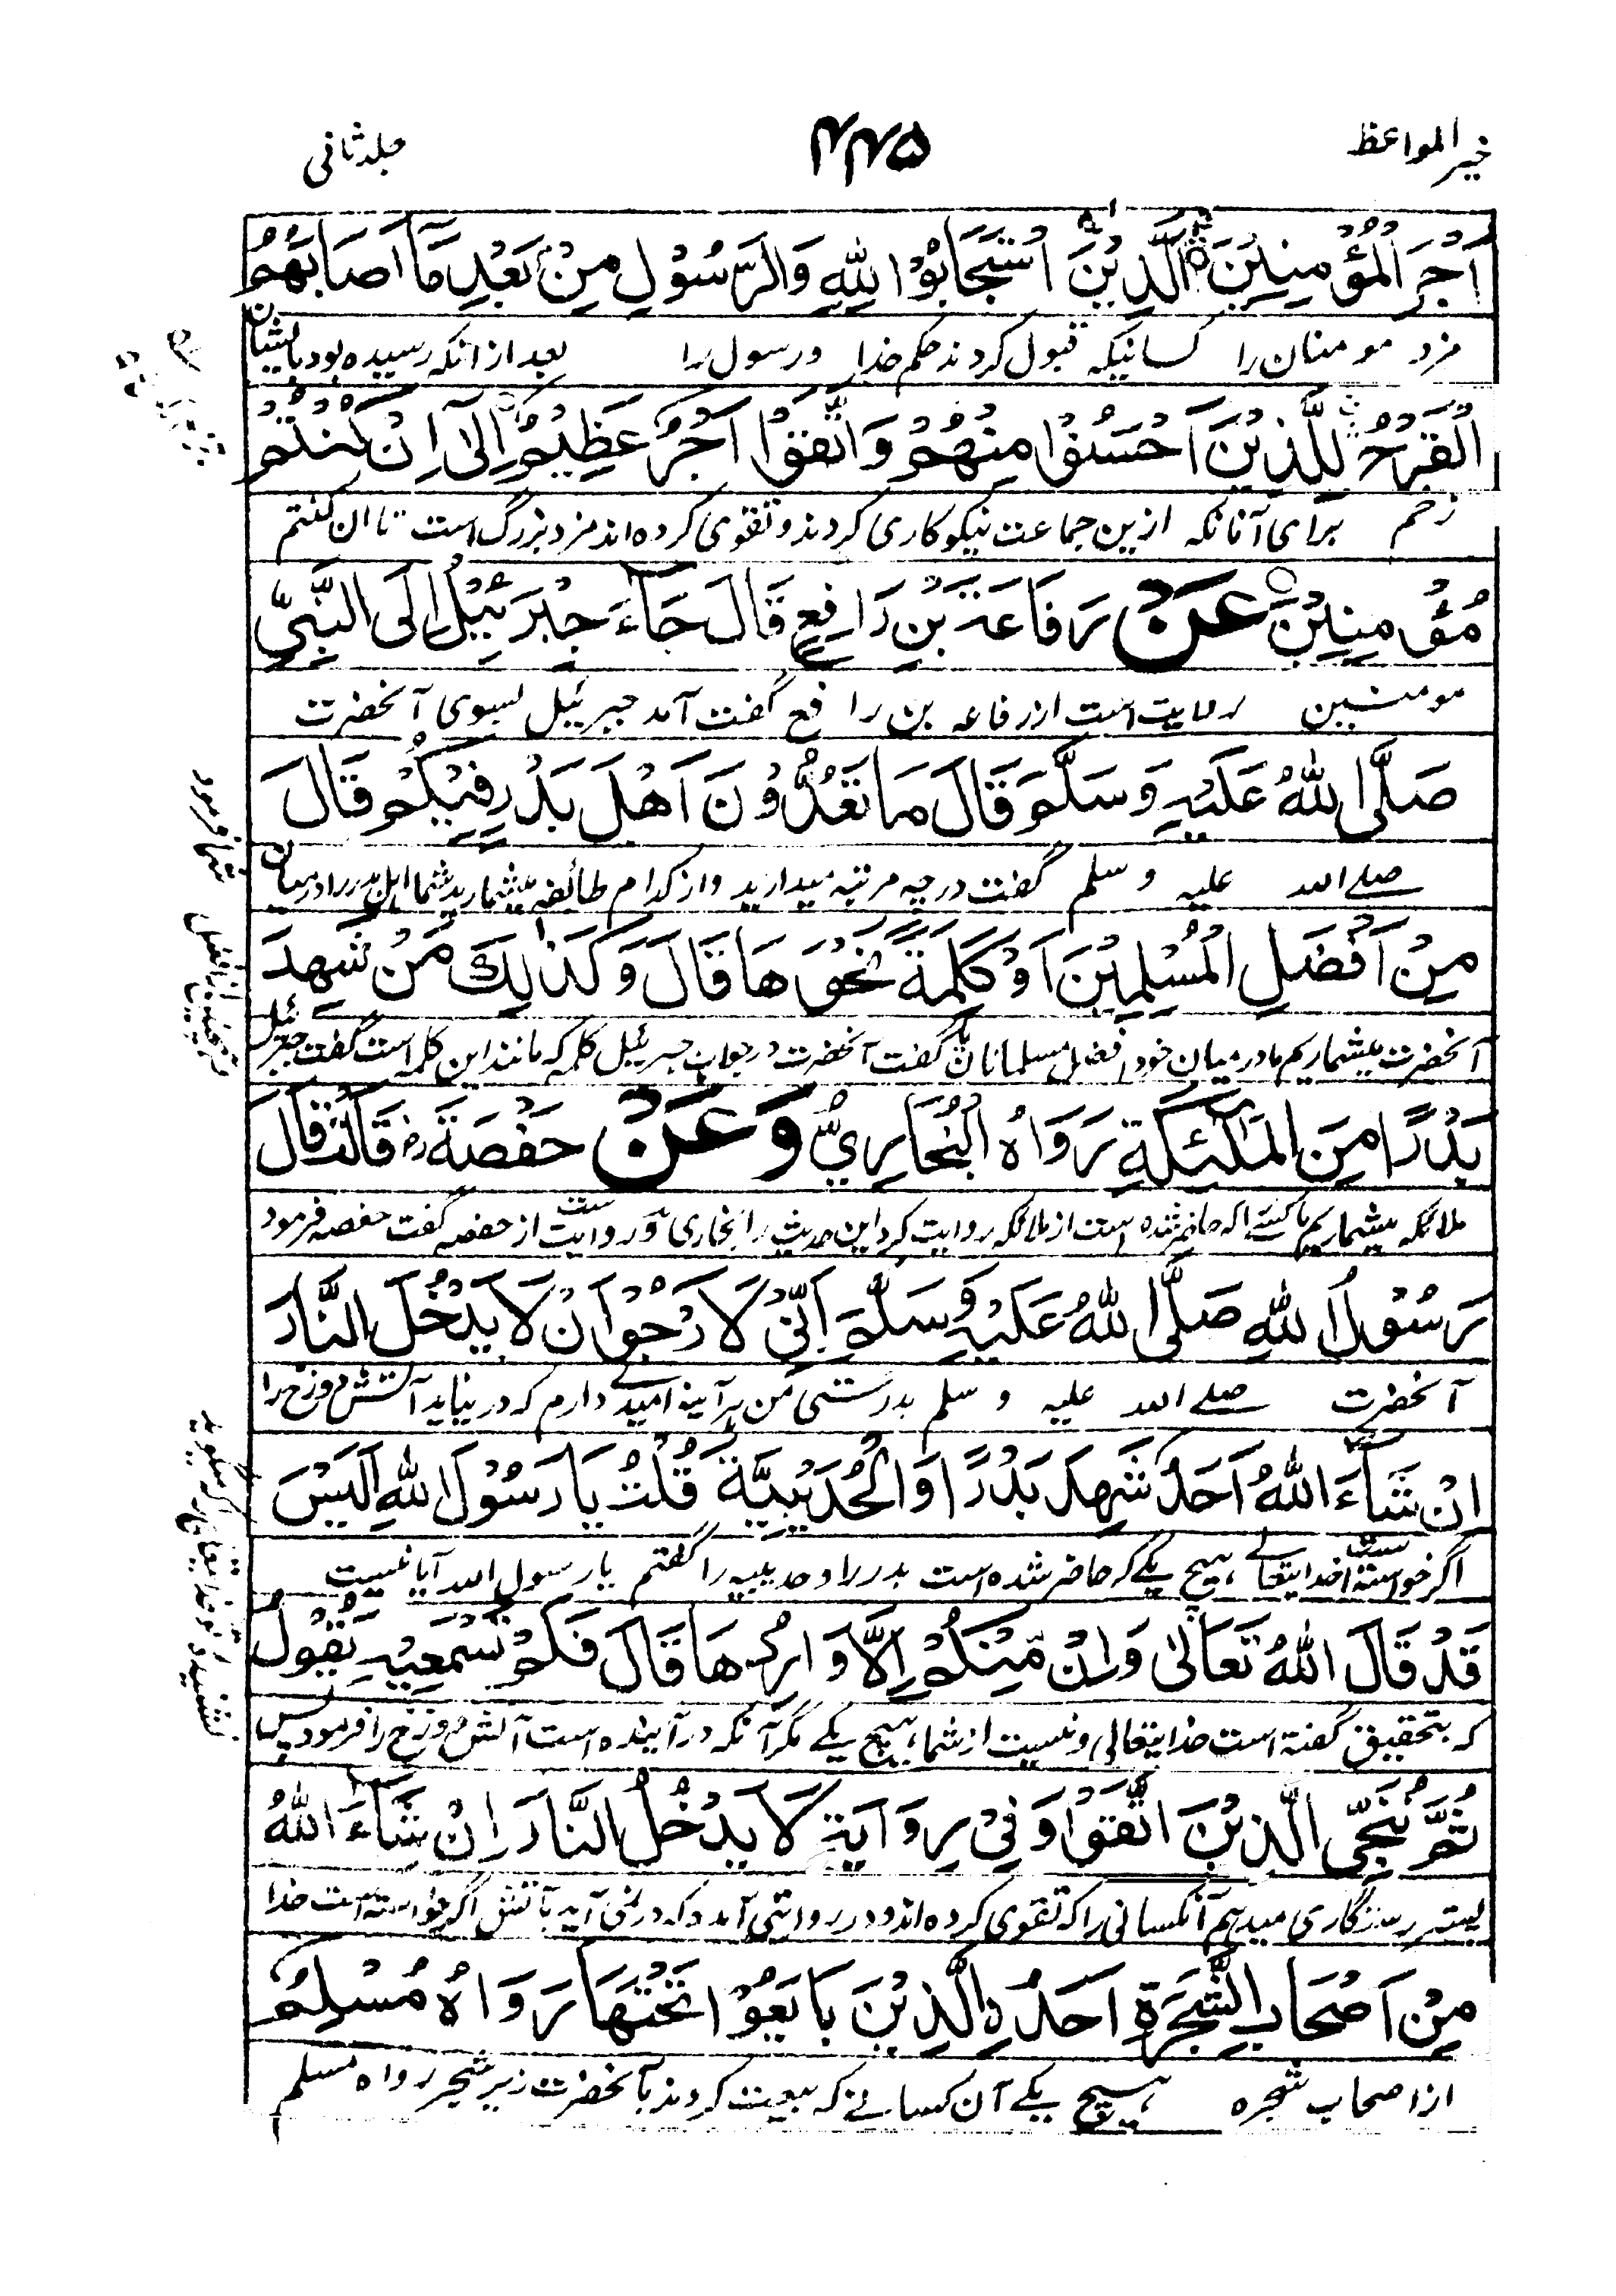 خیر المواعظ
۴۴۵
جلد ثانی
اَجْرَ الْمُؤْمِنِيْنَ ۞ الَّذِيْنَ اسْتَجَابُوْا لِلّٰهِ وَالرَّسُوْلِ مِنْ بَعْدِ مَآ اَصَابَهُمُ
مزد مومنان را کسانیکه قبول کردند حکم خدا و رسول را بعد از انکه رسیده بود بایشان
الْقَرْحُ لِلَّذِيْنَ اَحْسَنُوْا مِنْهُمْ وَاتَّقَوْا اَجْرٌ عَظِيْمٌ اِلٰى اِنْ كُنْتُمْ
زخم برای آنانکه ازین جماعت نیکوکاری کردند و تقوی کرده اند مزد بزرگ است تا ان کنتم
مُؤْمِنِيْنَ عَنْ رِفَاعَةَ بْنِ رَافِعٍ قَالَ جَاءَ جِبْرَئِيْلُ اِلَى النَّبِيِّ
مومنین روایت است از رفاعه بن رافع گفت آمد جبرئیل بسوی آنحضرت
صَلَّى اللهُ عَلَيْهِ وَسَلَّمَ قَالَ مَا تَعُدُّوْنَ اَهْلَ بَدْرٍ فِيْكُمْ قَالَ
صلے الله علیه و سلم گفت در چه مرتبه میدارید و از کدام طائفه میشمارید شما اهل بدر را درمیان
مِنْ اَفْضَلِ الْمُسْلِمِيْنَ اَوْ كَلِمَةً نَحْوَهَا قَالَ وَكَذٰلِكَ مَنْ شَهِدَ
آنحضرت میشماریم ما درمیان خود افضل مسلمانان یا گفت آنحضرت در جواب جبرئیل کلمه که مانند این کلمه است گفت جبرئیل
بَدْرًا مِنَ الْمَلٰئِكَةِ رَوَاهُ الْبُخَارِيُّ وَعَنْ حَفْصَةَ رض قَالَتْ قَالَ
ملائکه میشماریم ما کسے را که حاضر شده است از ملائکه روایت کرد این حدیث را بخاری و روایت است از حفصه گفت حفصه فرمود
رَسُوْلُ اللهِ صَلَّى اللهُ عَلَيْهِ وَسَلَّمَ اِنِّيْ لَاَرْجُوْ اَنْ لَا يَدْخُلَ النَّارَ
آنحضرت صلے الله علیه و سلم بدرستی من هرآینه امید دارم که در نیاید آتش دوزخ را
اِنْ شَاءَ اللهُ اَحَدٌ شَهِدَ بَدْرًا وَالْحُدَيْبِيَّةَ قُلْتُ يَا رَسُوْلَ اللهِ اَلَيْسَ
اگر خواسته است خدایتعالے هیچ یکے که حاضر شده است بدر را و حدیبیه را گفتم یا رسول الله آیا نیست
قَدْ قَالَ اللهُ تَعَالٰى وَاِنْ مِّنْكُمْ اِلَّا وَارِدُهَا قَالَ فَلَمْ تَسْمَعِيْهِ يَقُوْلُ
که بتحقیق گفته است خدایتعالی و نیست از شما هیچ یکے مگر آنکه در آینده است آتش دوزخ را فرمود پس
ثُمَّ نُنَجِّى الَّذِيْنَ اتَّقَوْا وَفِيْ رِوَايَةٍ لَا يَدْخُلُ النَّارَ اِنْ شَاءَ اللهُ
پستر رستگاری میدهم آنکسانی را که تقوی کرده اند و در روایتی آمده که در نمی آید بآتش اگر خواسته است خدا
مِنْ اَصْحَابِ الشَّجَرَةِ اَحَدٌ الَّذِيْنَ بَايَعُوْا تَحْتَهَا رَوَاهُ مُسْلِمٌ
از اصحاب شجره هیچ یکے آن کسانے که بیعت کردند بآنحضرت زیر شجر رواه مسلم